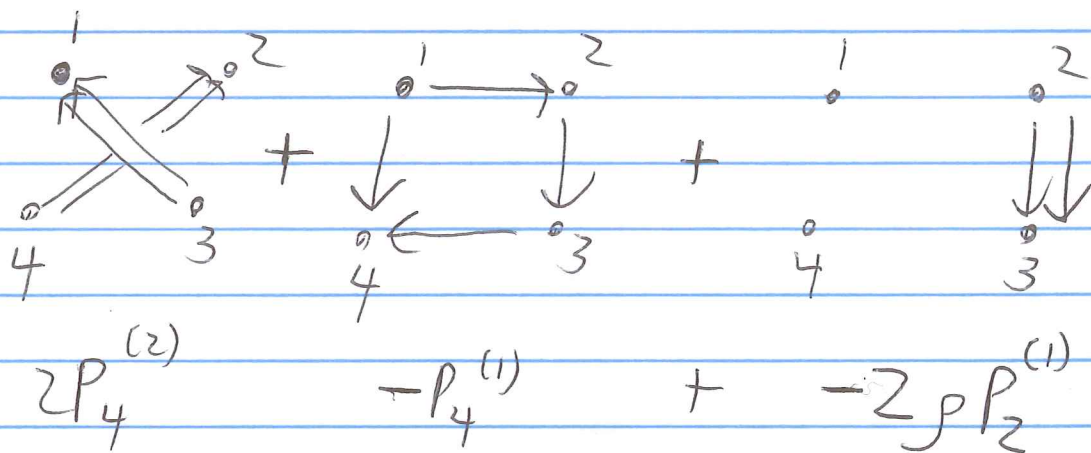 1 2 1 2 1 2
+ +
4 3 4 3 4 3
2P₄⁽²⁾ -P₄⁽¹⁾ + -2ρP₂⁽¹⁾